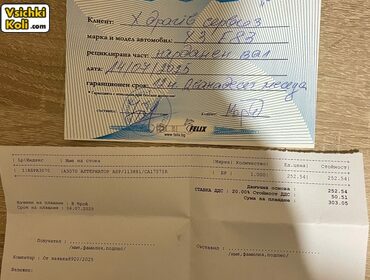 Vsichki
Koli.com
Клиент: Х драйв сервиз
марка и модел автомобил: X3 F83
рециклирана част: карданен вал
дата: 14/07/2025
гаранционен срок: 12м дванадесет месеца
FELIX
www.felix.bg
Gr/Индекс Име на стока Марка Количество: Ед.цена: Стойност
252.54 252.54
Данъчна основа : 252.54
СТАВКА ДДС : 20.00% Стойност ДДС : 50.51
Сума за плащане : 303.05
Начини на плащане : В брой
Срок на плащане :
Получател :
/име,фамилия,подпис/
Съставил :
/име,фамилия,подпис/
Коментар :
Бележки: